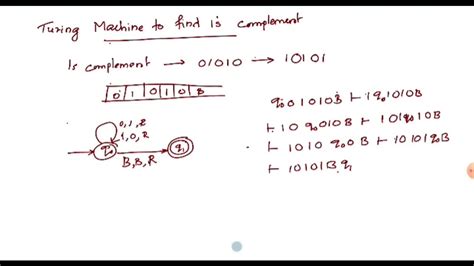 Turing Machine to find 1's complement
1s complement → 01010 → 10101
0 1 0 1 0 B
0,1,R
1,0,R
q0
B,B,R
q1
q0 01010B ⊢ 1q01010B
⊢ 10 q0010B ⊢ 101q010B
⊢ 1010 q00B ⊢ 10101q0B
⊢ 10101B q1